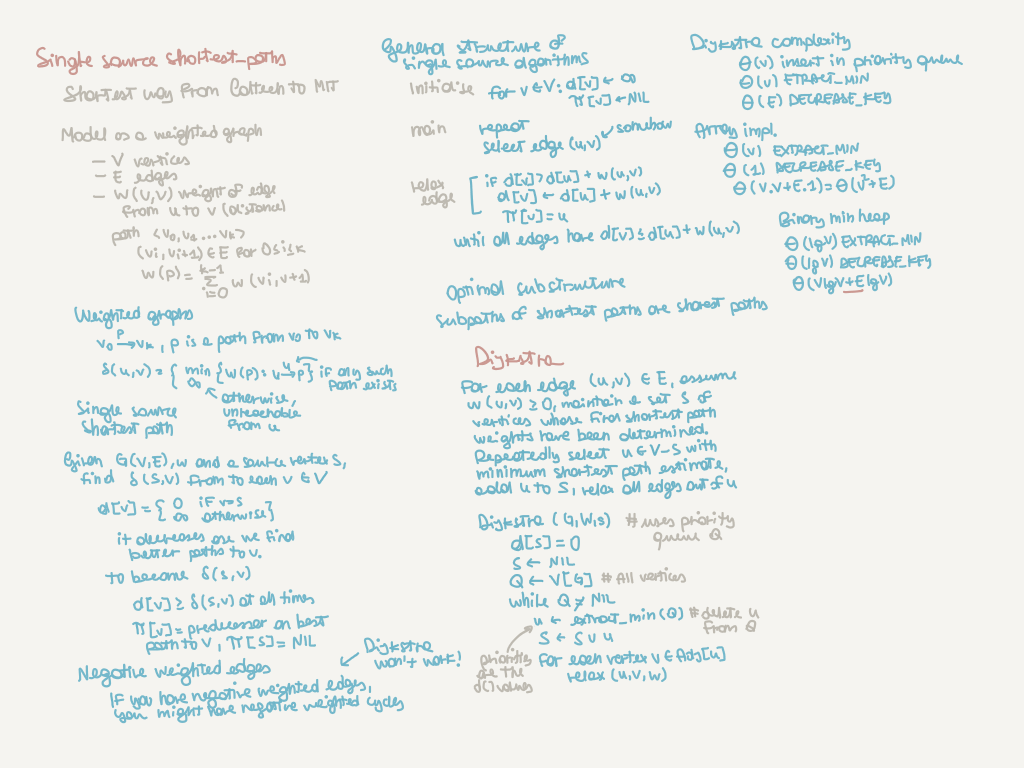 Single source shortest_paths
Shortest way from Caltech to MIT
Model as a weighted graph
— V vertices
— E edges
— W(U,V) weight of edge
from u to v (distance)
path <v0,v1 ... vk>
(vi, vi+1) ∈ E for 0≤i≤k
w(p) = k-1 Σ i=0 w (vi, v+1)
Weighted graphs
v0 p→ vk, p is a path from v0 to vk
δ(u,v) = { min {w(p): u u→ p} if any such
∞ path exists
otherwise,
unreachable
from u
Single source
shortest path
Given G(V,E), w and a source vertex S,
find δ(S,v) from to each v ∈ V
d[v] = { 0 if v=s
∞ otherwise}
it decreases as we find
better paths to v.
to become δ(s,v)
d[v] ≥ δ(s,v) at all times
π[v] = predecessor on best
path to v, π[s] = NIL
Negative weighted edges
Dijkstra
won't work!
If you have negative weighted edges,
you might have negative weighted cycles
General structure of
single source algorithms
Initialise for v ∈ V: d[v] ← ∞
π[v] ← NIL
main repeat
select edge (u,v) somehow
relax
edge
if d[v] > d[u] + w(u,v)
d[v] ← d[u] + w(u,v)
π[v] = u
until all edges have d[v] ≤ d[u] + w(u,v)
Optimal substructure
Subpaths of shortest paths are shorest paths
Dijkstra
For each edge (u,v) ∈ E, assume
w(u,v) ≥ 0, maintain a set S of
vertices whose final shortest path
weights have been determined.
Repeatedly select u ∈ V-S with
minimum shortest path estimate,
add u to S, relax all edges out of u
Dijkstra (G,W,s) # uses priority
queue Q
d[s] = 0
S ← NIL
Q ← V[G] # All vertices
while Q ≠ NIL
u ← extract_min(Q) # delete u
from Q
S ← S ∪ u
for each vertex v ∈ Adj[u]
relax (u,v,w)
priorities
are the
d[] values
Dijkstra complexity
Θ(v) insert in priority queue
Θ(v) ETRACT_MIN
Θ(E) DECREASE_KEY
Array impl.
Θ(v) EXTRACT_MIN
Θ(1) DECREASE_KEY
Θ(V.V+E.1) = Θ(V²+E)
Binary min heap
Θ(lgV) EXTRACT_MIN
Θ(lgV) DECREASE_KEY
Θ(VlgV+ElgV)